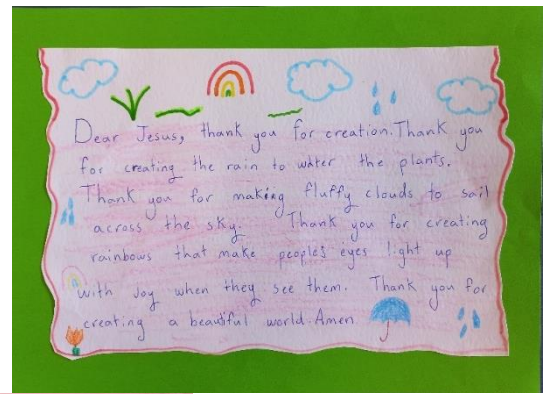 Dear Jesus, thank you for creation. Thank you
for creating the rain to water the plants.
Thank you for making fluffy clouds to sail
across the sky. Thank you for creating
rainbows that make peoples eyes light up
with Joy when they see them. Thank you for
creating a beautiful world. Amen